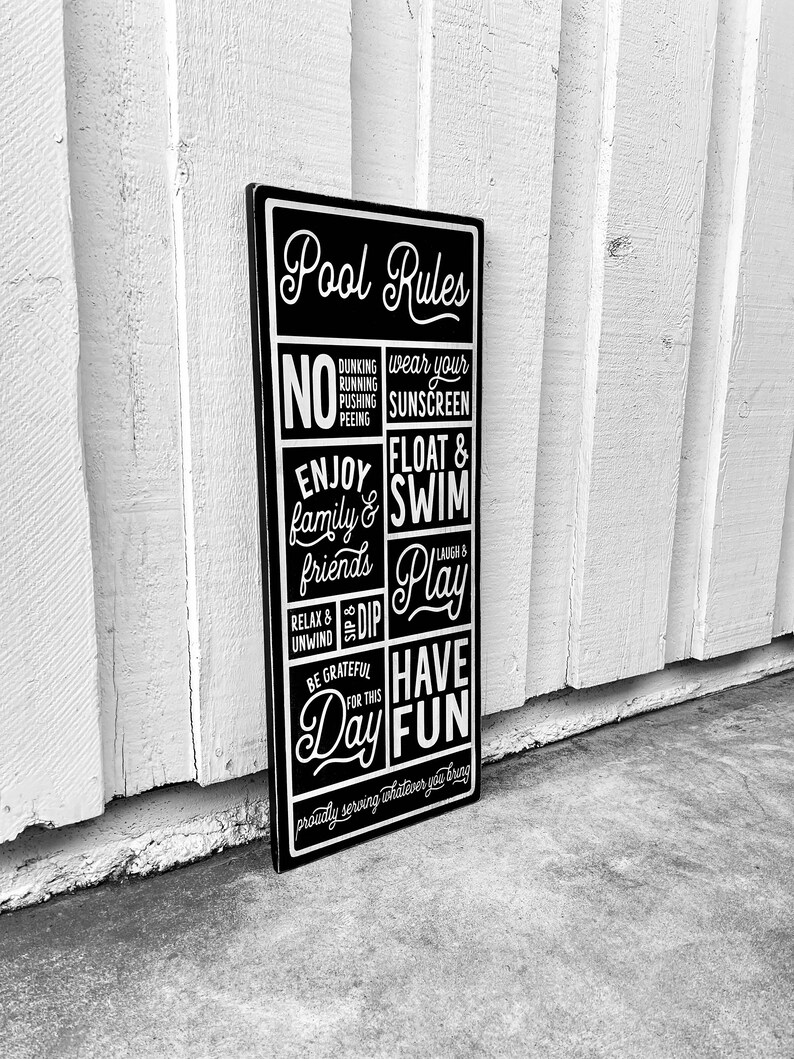 Pool Rules
NO
DUNKING
RUNNING
PUSHING
PEEING
wear your
SUNSCREEN
ENJOY
family &
friends
FLOAT &
SWIM
LAUGH &
Play
RELAX &
UNWIND
SIP &
DIP
BE GRATEFUL
FOR THIS
Day
HAVE
FUN
proudly serving whatever you bring